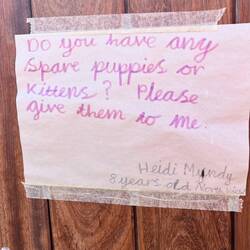 Do you have any
Spare puppies or
Kittens? Please
give them to me.
Heidi Mundy
8 years old